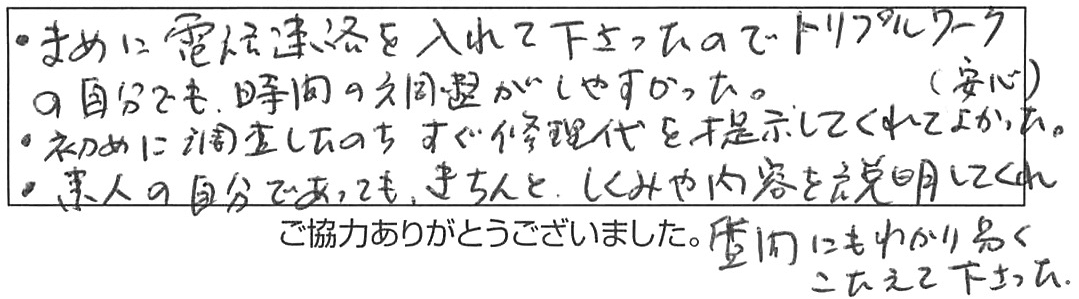 ・まめに電話連絡を入れて下さったのでトリプルワーク
の自分でも、時間の調整がしやすかった。
(安心)
・初めに調査したのちすぐ修理代を提示してくれてよかった。
・素人の自分であっても、きちんと、しくみや内容を説明してくれ
ご協力ありがとうございました。
質問にもわかり易く
こたえて下さった。